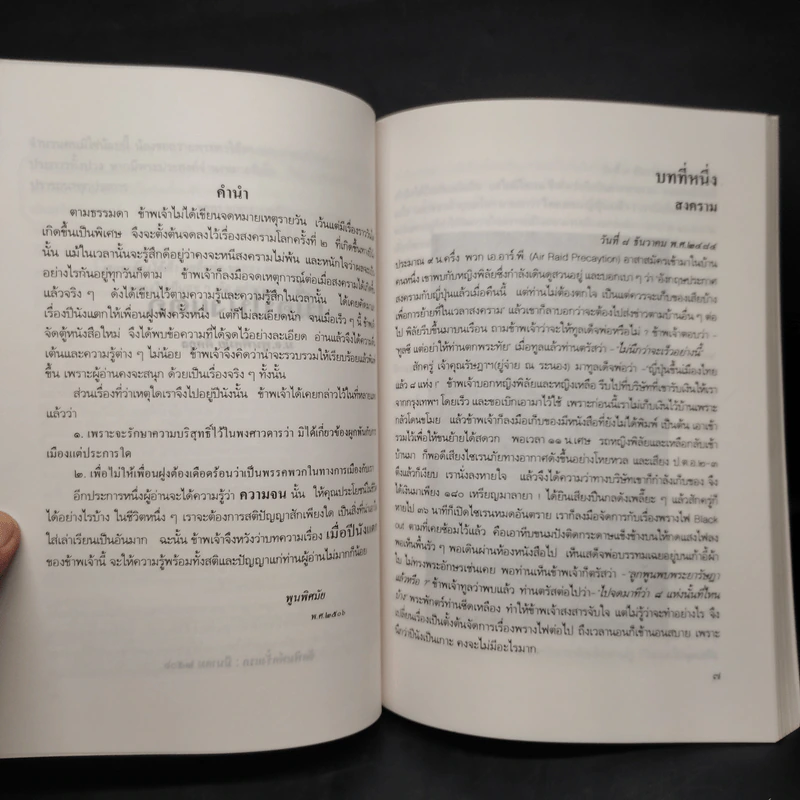 คำนำ
ตามธรรมดา ข้าพเจ้าไม่ได้เขียนจดหมายเหตุรายวัน เว้นแต่มีเรื่องราวอันใด
เกิดขึ้นเป็นพิเศษ จึงจะตั้งต้นจดลงไว้เรื่องสงครามโลกครั้งที่ ๒ ที่เกิดขึ้น
นั้น แม้ในเวลานั้นจะรู้สึกดีอยู่ว่าคงจะหนีสงครามไม่พ้น และหนักใจว่าผลจะเป็น
อย่างไรกันอยู่ทุกวันก็ตาม ข้าพเจ้าก็ลงมือจดเหตุการณ์ต่อเมื่อสงครามได้
แล้วจริง ๆ ดังได้เขียนไว้ตามความรู้และความรู้สึกในเวลานั้น ได้เคยคัด
เรื่องปีนังแตกให้เพื่อนฝูงฟังครั้งหนึ่ง แต่ก็ไม่ละเอียดนัก จนเมื่อเร็ว ๆ นี้
จัดตู้หนังสือใหม่ จึงได้พบข้อความที่ได้จดไว้อย่างละเอียด อ่านแล้วจึงได้
เต้นและความรู้ต่าง ๆ ไม่น้อย ข้าพเจ้าจึงคิดว่าน่าจะรวบรวมให้เรียบร้อยแล้วพิมพ์
ขึ้น เพราะผู้อ่านคงจะสนุก ด้วยเป็นเรื่องจริง ๆ ทั้งนั้น
ส่วนเรื่องที่ว่าเหตุใดเราจึงไปอยู่ปีนังนั้น ข้าพเจ้าได้เคยกล่าวไว้ในที่หลาย
แล้วว่า
๑. เพราะจะรักษาความบริสุทธิ์ไว้ในพงศาวดารว่า มิได้เกี่ยวข้องผูกพันกับการ
เมืองแต่ประการใด
๒. เพื่อไม่ให้เพื่อนฝูงต้องเดือดร้อนว่าเป็นพรรคพวกในทางการเมืองกับเรา
อีกประการหนึ่งผู้อ่านจะได้ความรู้ว่า ความจน นั้น ให้คุณประโยชน์ในชีวิต
ได้อย่างไรบ้าง ในชีวิตหนึ่ง ๆ เราจะต้องการสติปัญญาสักเพียงใด เป็นสิ่งที่น่า
ใส่เล่าเรียนเป็นอันมาก ฉะนั้น ข้าพเจ้าจึงหวังว่าบทความเรื่อง เมื่อปีนังแตก
ของข้าพเจ้านี้ จะให้ความรู้พร้อมทั้งสติและปัญญาแก่ท่านผู้อ่านไม่มากก็น้อย
พูนพิศมัย
พ.ศ.๒๕๐๖
บทที่หนึ่ง
สงคราม
วันที่ ๘ ธันวาคม พ.ศ.๒๔๘๔
ประมาณ ๙ น.ครึ่ง พวก เอ.อาร์.พี. (Air Raid Precaytion) อาสาสมัครเข้ามาในบ้าน
คนหนึ่ง เขาพบกับหญิงพิลัยซึ่งกำลังเดินดูสวนอยู่ และบอกเบา ๆ ว่า 'อังกฤษประกาศ
สงครามกับญี่ปุ่นแล้วเมื่อคืนนี้ แต่ท่านไม่ต้องตกใจ เป็นแต่ควรจะเก็บของเสียบ้าง
เพื่อการย้ายที่ในเวลาสงคราม' แล้วเขาก็ลาบอกว่าจะต้องไปส่งข่าวตามบ้านอื่น ๆ ต่อ
ไป พิลัยรีบขึ้นมาบนเรือน ถามข้าพเจ้าว่าจะให้ทูลเด็จพ่อหรือไม่ ? ข้าพเจ้าตอบว่า -
'ทูลซี แต่อย่าให้ท่านตกพระทัย' เมื่อทูลแล้วท่านตรัสว่า - 'ไม่นึกว่าจะเร็วอย่างนี้'
สักครู่ เจ้าคุณรัษฎาฯ(ยู่จ่าย ณ ระนอง) มาทูลเด็จพ่อว่า - 'ญี่ปุ่นขึ้นเมืองไทย
แล้ว ๘ แห่ง !' ข้าพเจ้าบอกหญิงพิลัยและหญิงเหลือ รีบไปที่บริษัทที่เขารับเงินให้เรา
จากกรุงเทพฯ โดยเร็ว และขอเบิกเอามาไว้ใช้ เพราะก่อนนี้เราไม่เก็บเงินไว้บ้านเพราะ
กลัวโดนขโมย แล้วข้าพเจ้าก็ลงมือเก็บของมีหนังสือที่ยังไม่ได้พิมพ์ เป็นต้น เอาเข้า
รวมไว้เพื่อให้ขนย้ายได้สดวก พอเวลา ๑๑ น.เศษ รถหญิงพิลัยและเหลือกลับเข้า
บ้านมา ก็พอดีเสียงไซเรนภัยทางอากาศดังขึ้นอย่างโหยหวล และเสียง ป.ต.อ.๒-๓
ดังแล้วก็เงียบ เรานั่งลงหายใจ แล้วจึงได้ความว่าทางบริษัทเขาก็กำลังเก็บของ จึง
ได้เงินมาเพียง ๔๘๐ เหรียญมาลายา ! ได้ยินเสียงปืนกลดังเพลี้ยะ ๆ แล้วสักครู่ก็
หายไป ๓๖ นาทีก็เปิดไซเรนหมดอันตราย เราก็ลงมือจัดการเกี่ยวกับเรื่องพรางไฟ Black
out ตามที่เคยซ้อมไว้แล้ว คือเอาหีบขนมปังติดกระดาษแข็งข้างบนห้อยบังไฟให้กดแสงไฟลง
พอเห็นพื้นรัว ๆ พอเดินผ่านห้องหนังสือไป เห็นเสด็จพ่อบรรทมเฉยอยู่บนเก้าอี้ผ้า
ใบ ไม่ทรงพระอักษรเช่นเคย พอท่านเห็นข้าพเจ้าก็ตรัสว่า - 'ลูกพูนพบพระยารัษฎา
แล้วหรือ ?' ข้าพเจ้าทูลว่าพบแล้ว ท่านตรัสต่อไปว่า - 'ไปจดมาทีว่า ๘ แห่งนั้นที่ไหน
บ้าง' พระพักตร์ท่านซีดเหลือง ทำให้ข้าพเจ้าสงสารจับใจ แต่ไม่รู้ว่าจะทำอย่างไร จึง
เปลี่ยนเรื่องเป็นตั้งต้นจัดการเรื่องพรางไฟต่อไป ถึงเวลานอนก็เข้านอนสบาย เพราะ
นึกว่าปีนังเป็นเกาะ คงจะไม่มีอะไรมาก
๗